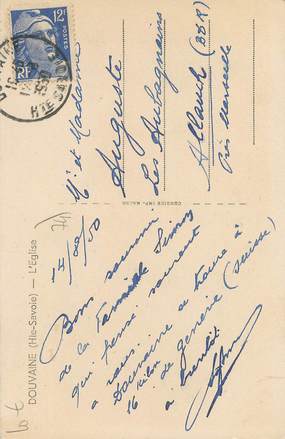 12F
POSTES
RF
Hte SAVOIE
Mr et Madame
Auguste
Les Aubagnains
Allauch (BDR)
Près Marseille
COMBIER IMP. MACON
74
14/08/50
Bon souvenir
de la Famille Simon
qui pense souvent
a vous.
Douvaine se trouve à
16 kilm de genève (suisse)
a bientôt
DOUVAINE (Hte-Savoie) — L'Eglise